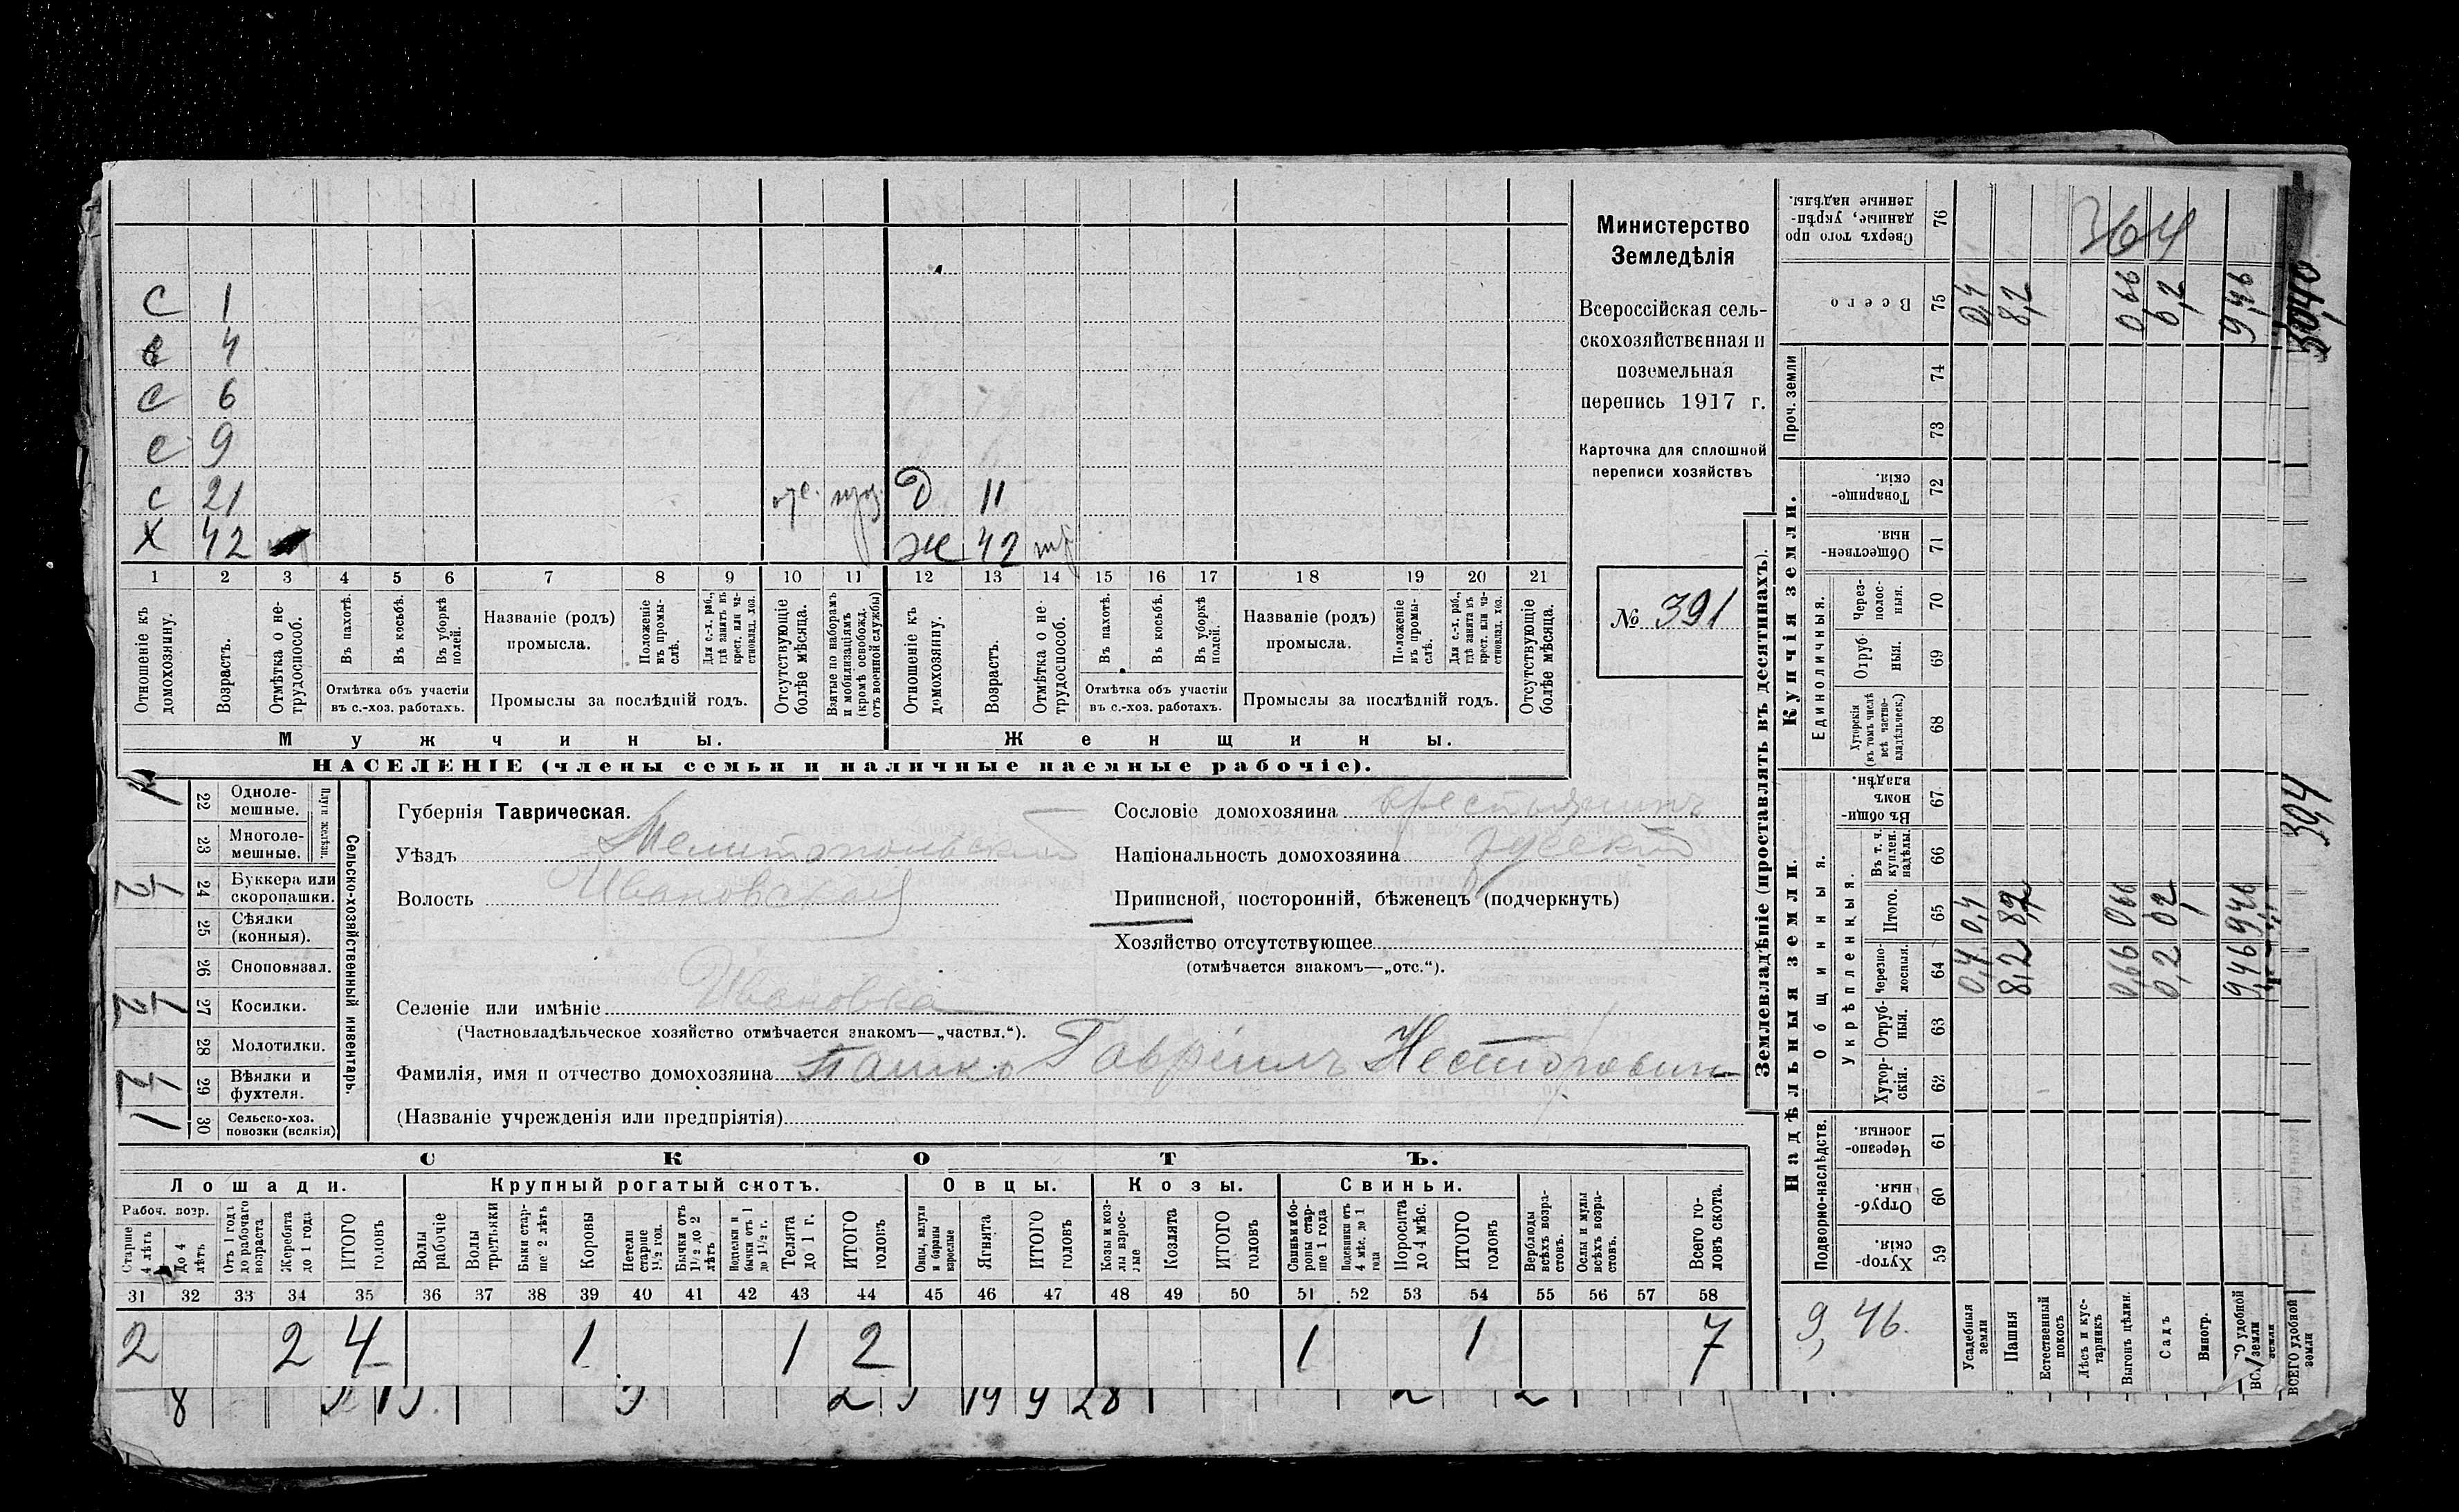 С 1
с 4
с 6
с 9
с 21 Д 11
Х 42 Ж 42
1 2 3 4 5 6 7 8 9 10 11 12 13 14 15 16 17 18 19 20 21
Отношеніе къ домохозяину.
Возрастъ.
Отмѣтка о не-трудоспособ.
Въ пахотѣ.
Въ косьбѣ.
Въ уборкѣ полей.
Отмѣтка объ участіи въ с.-хоз. работахъ.
Названіе (родъ) промысла.
Положеніе въ промы-слѣ.
Для с.-х. раб., гдѣ занятъ въ крест. или ча-стновлад. хоз.
Промыслы за послѣдній годъ.
Отсутствующіе болѣе мѣсяца.
Взятые по наборамъ и мобилизаціямъ (кромѣ освобожд. отъ военной службы)
Отношеніе къ домохозяину.
Возрастъ.
Отмѣтка о не-трудоспособ.
Въ пахотѣ.
Въ косьбѣ.
Въ уборкѣ полей.
Отмѣтка объ участіи въ с.-хоз. работахъ.
Названіе (родъ) промысла.
Положеніе въ промы-слѣ.
Для с.-х. раб., гдѣ занята въ крест. или ча-стновлад. хоз.
Промыслы за послѣдній годъ.
Отсутствующіе болѣе мѣсяца.
Мужчины. Женщины.
НАСЕЛЕНІЕ (члены семьи и наличные наемные рабочіе).
Министерство
Земледѣлія
Всероссійская сель-
скохозяйственная и
поземельная
перепись 1917 г.
Карточка для сплошной
переписи хозяйствъ
№ 391
Сельско-хозяйственный инвентарь.
Плуги желѣзн.
22 Одноле-мешные. 1
23 Многоле-мешные.
24 Буккера или скоропашки. 1/2
25 Сѣялки (конныя).
26 Сноповязал.
27 Косилки. 1/2
28 Молотилки.
29 Вѣялки и фухтеля. 1/2
30 Сельско-хоз. повозки (всякія) 1
Губернія Таврическая.
Уѣздъ Мелитопольскій
Волость Ивановская
Селеніе или имѣніе Ивановка
(Частновладѣльческое хозяйство отмѣчается знакомъ—„частвл.“).
Фамилія, имя и отчество домохозяина Пашко Гавріилъ Несторовичъ
(Названіе учрежденія или предпріятія)
Сословіе домохозяина крестьянинъ
Національность домохозяина русскій
Приписной, посторонній, бѣженецъ (подчеркнуть)
Хозяйство отсутствующее
(отмѣчается знакомъ—„отс.“).
СКОТЪ.
Лошади. Крупный рогатый скотъ. Овцы. Козы. Свиньи.
Рабоч. возр.
Старше 4 лѣтъ
До 4 лѣтъ
Отъ 1 года до рабочаго возраста
Жеребята до 1 года
ИТОГО головъ
Волы рабочіе
Волы третьяки
Быки стар-ше 2 лѣтъ
Коровы
Нетели старше 1½ год.
Бычки отъ 1½ до 2 лѣтъ
Подтелки и бычки отъ 1 до 1½ г.
Телята до 1 г.
ИТОГО головъ
Овцы, валухи и бараны взрослые
Ягнята
ИТОГО головъ
Козы и коз-лы взрос-лые
Козлята
ИТОГО головъ
Свиньи и бо-ровы стар-ше 1 года
Подсвинки отъ 4 мѣс. до 1 года
Поросята до 4 мѣс.
ИТОГО головъ
Верблюды всѣхъ возра-стовъ.
Ослы и мулы всѣхъ возра-стовъ.
Всего го-ловъ скота.
31 32 33 34 35 36 37 38 39 40 41 42 43 44 45 46 47 48 49 50 51 52 53 54 55 56 57 58
2 2 4 1 1 2 1 1 7
8 19 9 28
Землевладѣніе (проставлять въ десятинахъ).
Надѣльныя земли. Купчія земли. Проч. земли
Подворно-наслѣдств.
Общинныя.
Укрѣпленныя.
Единоличныя.
Хутор-скія 59
Отруб-ныя. 60
Черезпо-лосныя. 61
Хутор-скія. 62
Отруб-ныя. 63
Черезпо-лосныя. 64
Итого. 65
Въ т. ч. куплен. надѣлы. 66
Въ общи-номъ владѣн. 67
Хуторскія (въ томъ числѣ всѣ частно-владѣльческ.) 68
Отруб-ныя. 69
Через-полос-ныя. 70
Обществен-ныя 71
Товарище-скія. 72
73
74
Всего 75
Сверхъ того про-данные, укрѣп-ленные надѣлы. 76
Усадебныя земли 0,4 0,4 0,4
Пашня 8,2 8,2 8,2
Естественный покосъ
Лѣсъ и кус-тарникъ
Выгонъ цѣлин. 0,66 0,66 0,66
Садъ 0,2 0,2 0,2
Виногр.
9,46 9,46 9,46
ВСЕГО удобной земли
9,46.
364
394